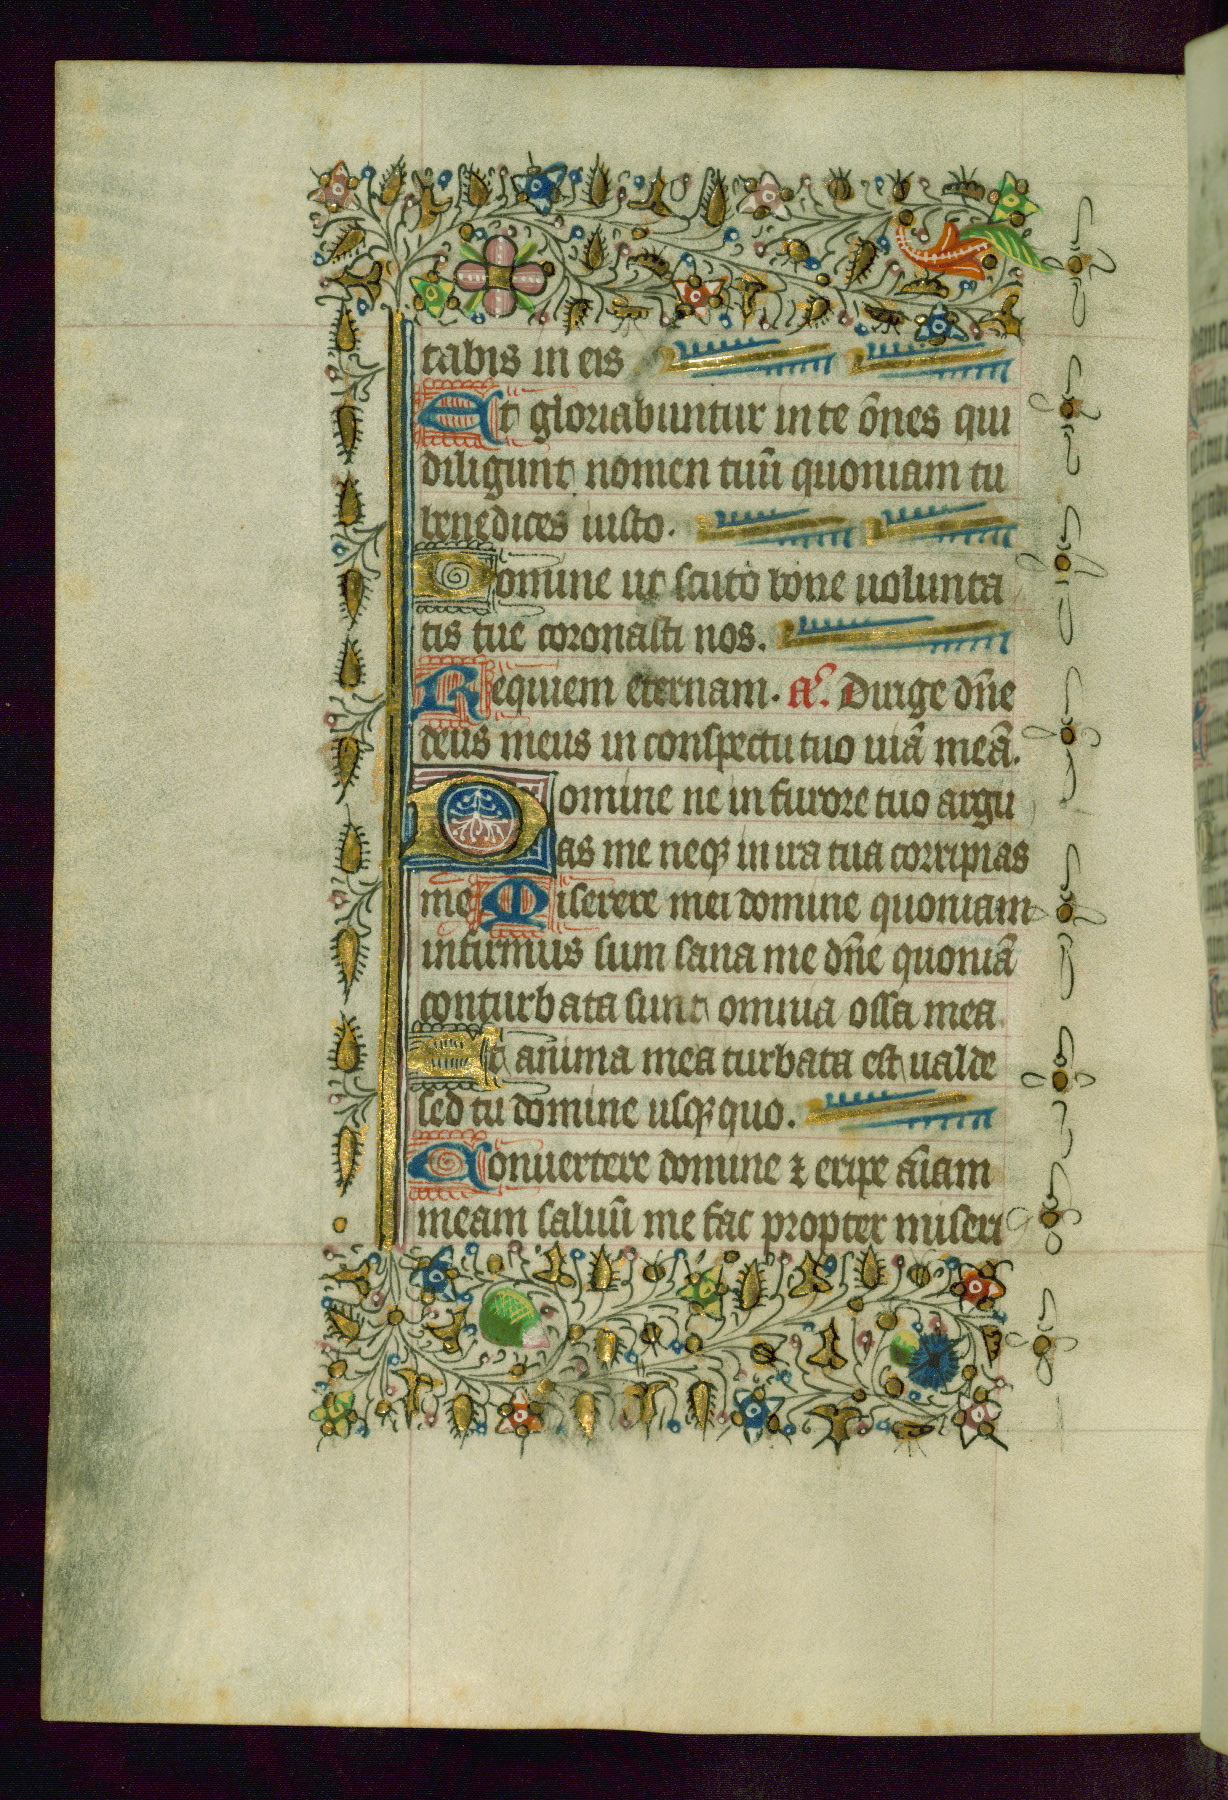 tabis in eis
Et gloriabuntur in te o̅nes qui
diligunt nomen tuū quoniam tu
benedices iusto.
Domine ut scuto bone uolunta
tis tue coronasti nos.
Requiem eternam. a̅. Dirige dn̅e
deus meus in conspectu tuo uiā meā.
Domine ne in furore tuo argu
as me neqꝫ in ira tua corripias
me Miserere mei domine quoniam
infirmus sum sana me dn̅e quoniā
conturbata sunt omnia ossa mea
Et anima mea turbata est ualde
sed tu domine usqꝫ quo.
Conuertere domine ⁊ eripe aīam
meam saluū me fac propter miseri